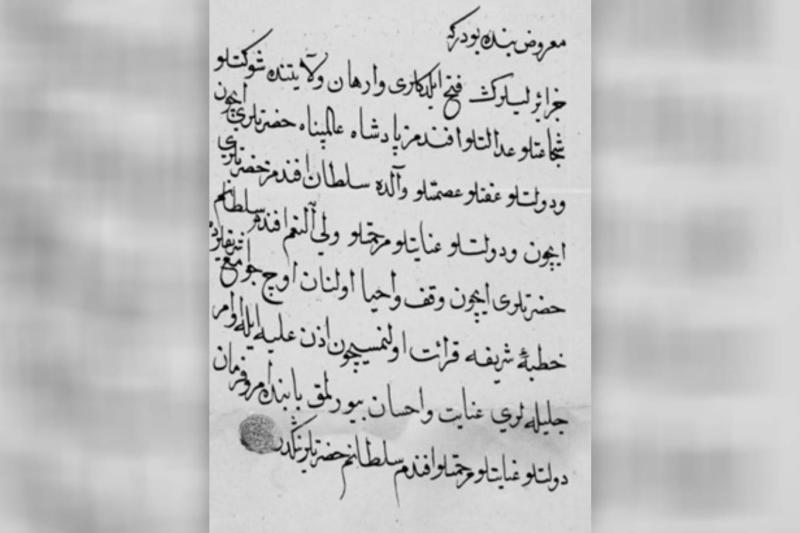 معروض بنده بودركه
جزائر ليلرك فتح ايلدكلرى وارهان ولايتنده شوكتلو
شجاعتلو عدالتلو افندمز پادشاه عالمپناه حضرتلرى ايچون
ودولتلو عفتلو عصمتلو والده سلطان افندمز حضرتلرى
ايچون ودولتلو عنايتلو مرحمتلو ولي النعم افندم سلطانم
حضرتلرى ايچون وقف واحيا اولنان اوچ جوامع شريفلرده
خطبهٔ شريفه قرائت اولنمسيچون اذن عليه ايله اوامر
جليله لرى عنايت واحسان بيورلمق بابنده امر وفرمان
دولتلو عنايتلو مرحمتلو افندم سلطانم حضرتلرينكدر